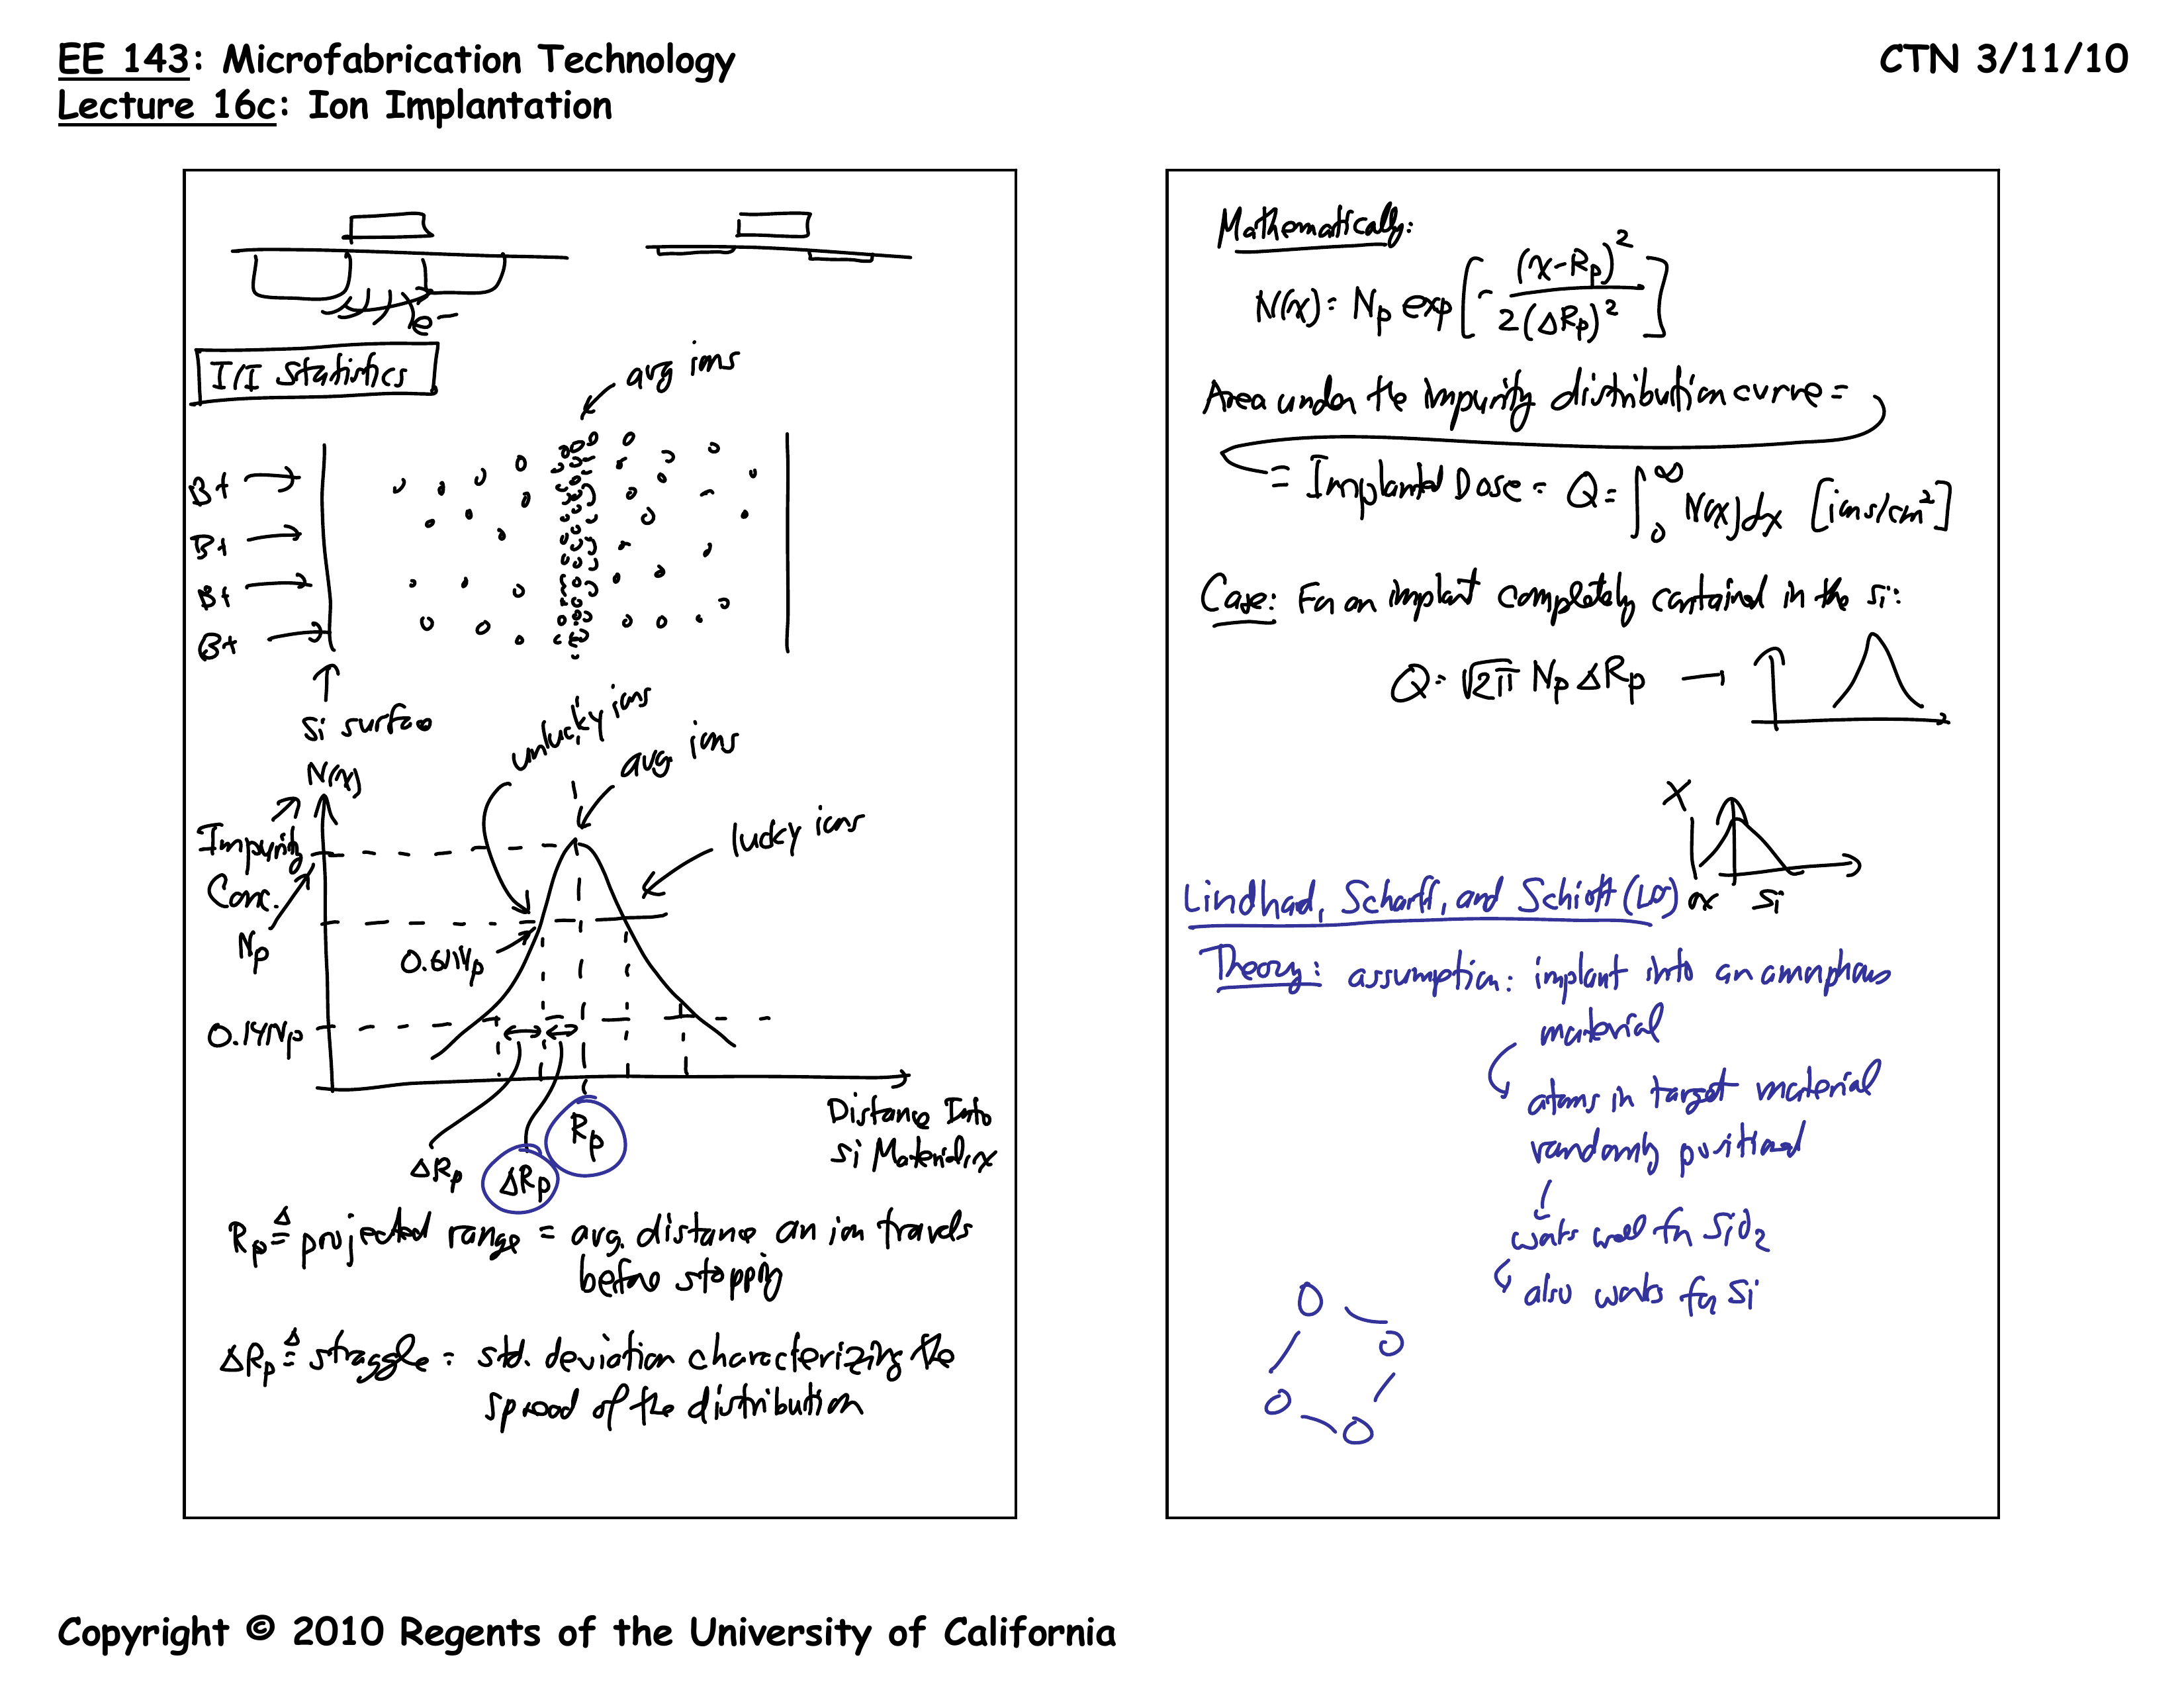 EE 143: Microfabrication Technology
CTN 3/11/10
Lecture 16c: Ion Implantation
e-
I/I Statistics
avg ions
B+
B+
B+
B+
Si surface
unlucky ions
avg. ions
lucky ions
N(x)
Impurity
Conc.
Np
0.61Np
0.14Np
Distance Into
Si Material, x
Rp
ΔRp
ΔRp
Rp ≜ projected range = avg. distance an ion travels
before stopping
ΔRp ≜ straggle = std. deviation characterizing the
spread of the distribution
Mathematically:
N(x) = Np exp[-(x-Rp)²/2(ΔRp)²]
Area under the impurity distribution curve =
= Implanted Dose = Q = ∫₀^∞ N(x)dx [ions/cm²]
Case: For an implant completely contained in the Si:
Q = √2π Np ΔRp →
X
ox Si
Lindhad, Scharff, and Schiott (LSS)
Theory: assumption: implant into an amorphous
material
atoms in target material
randomly positioned
works well for SiO₂
also works for Si
Copyright © 2010 Regents of the University of California